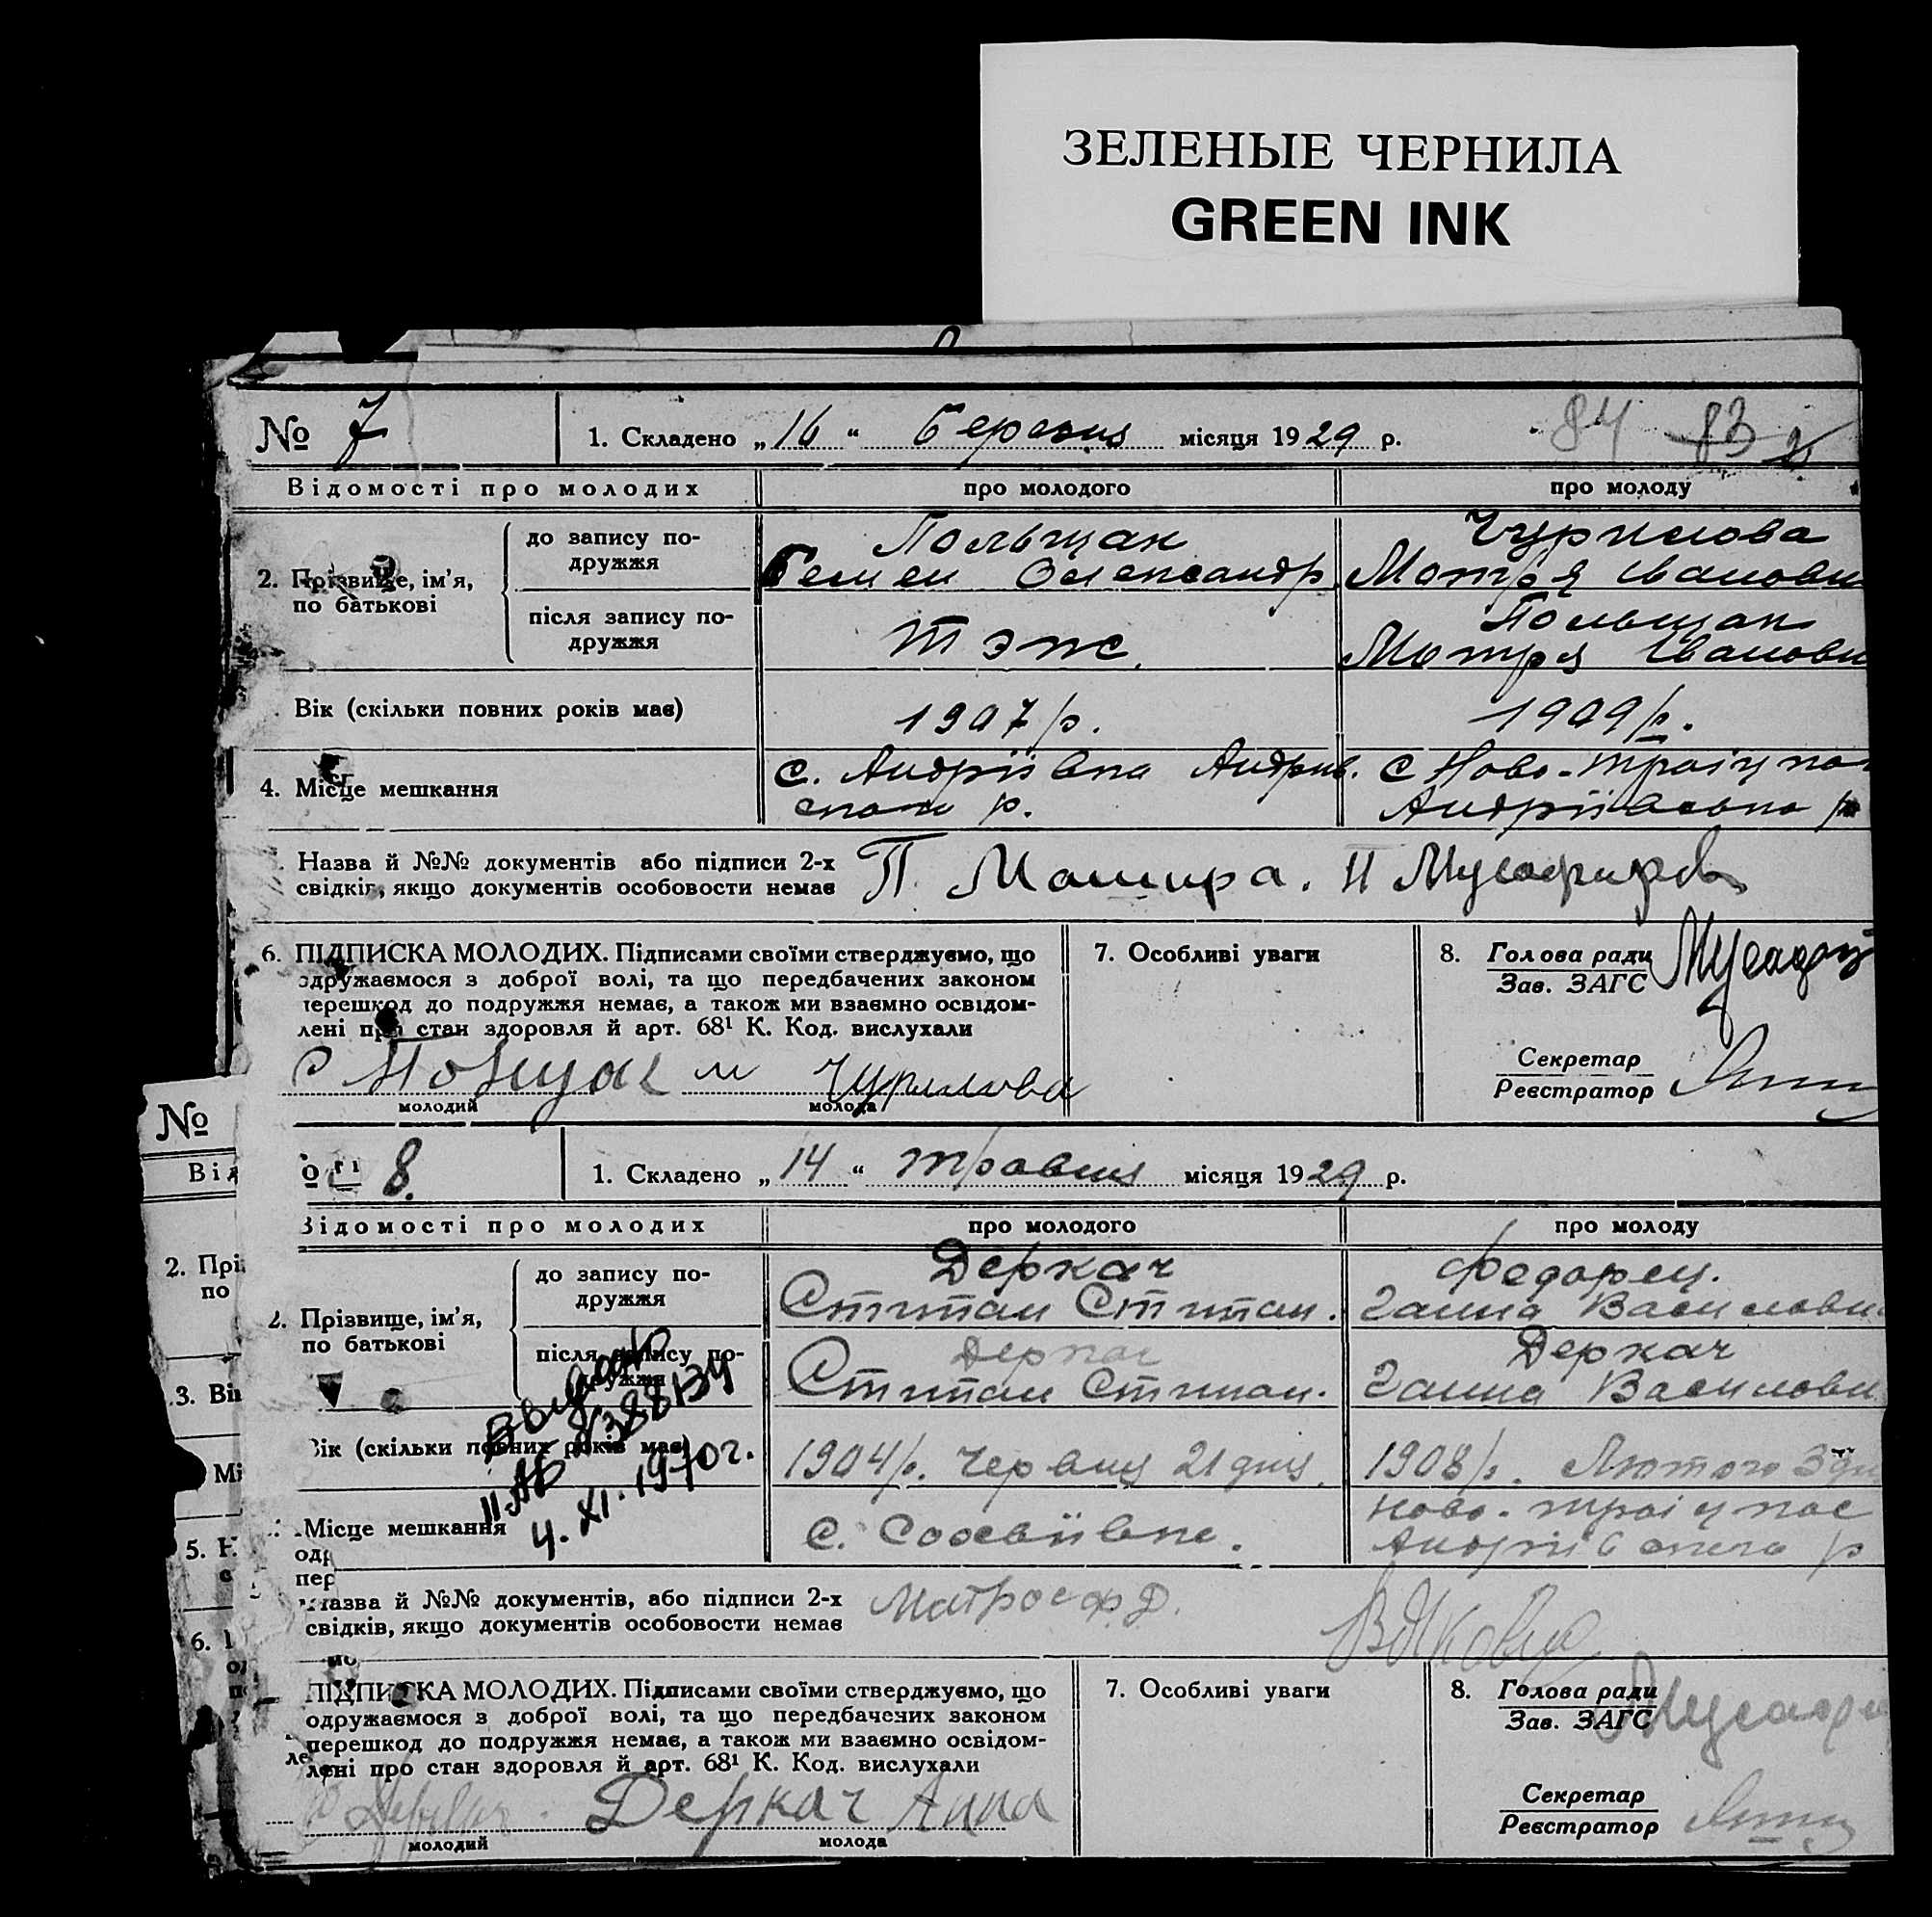 ЗЕЛЕНЫЕ ЧЕРНИЛА
GREEN INK
№ 7
1. Складено „16“ березня місяця 1929 р.
84 83
Відомості про молодих
про молодого
про молоду
2. Прізвище, ім’я, по батькові
до запису по-
дружжя
Польщак
Семен Олександр.
Чурилова
Мотря Івановн
після запису по-
дружжя
Теж
Польщак
Мотря Івановн
Вік (скільки повних років має)
1907 р.
1909 р.
4. Місце мешкання
с. Андріївка Андрів.
ського р.
с Ново-Троіцко
Андріївсько р
Назва й №№ документів або підписи 2-х
свідків, якщо документів особовости немає
П. Мошира. П Мусафиров
6. ПІДПИСКА МОЛОДИХ. Підписами своїми стверджуємо, що
одружаємося з доброї волі, та що передбачених законом
перешкод до подружжя немає, а також ми взаємно освідом-
лені про стан здоровля й арт. 68¹ К. Код. вислухали
7. Особливі уваги
8. Голова ради
Зав. ЗАГС
Мусафи
Секретар
Реєстратор
С Польщак
м Чурилова
молодий
молода
№
8.
1. Складено „14“ травня місяця 1929 р.
Від
Відомості про молодих
про молодого
про молоду
2. Прі
по
2. Прізвище, ім’я,
по батькові
до запису по-
дружжя
Деркач
Стипан Стипан.
Федорец.
Ганна Василовн
після запису по-
дружжя
Деркач
Стипан Стипан.
Деркач
Ганна Василовн
Выдано
II АБ №388134
4. XI. 1970 г.
3. Ві
Вік (скільки повних років має)
1904 р. Червня 21 дня.
1908 р. Лютого 3 дн
Мі
Місце мешкання
с. Софіївка.
Ново-Троіцкос
Андріівського р
5. Н
Назва й №№ документів, або підписи 2-х
свідків, якщо документів особовости немає
Матрос Ф.Д.
6.
ПІДПИСКА МОЛОДИХ. Підписами своїми стверджуємо, що
одружаємося з доброї волі, та що передбачених законом
перешкод до подружжя немає, а також ми взаємно освідом-
лені про стан здоровля й арт. 68¹ К. Код. вислухали
7. Особливі уваги
8. Голова ради
Зав. ЗАГС
Мусафи
Секретар
Реєстратор
Деркач
Деркач Анна
молодий
молода